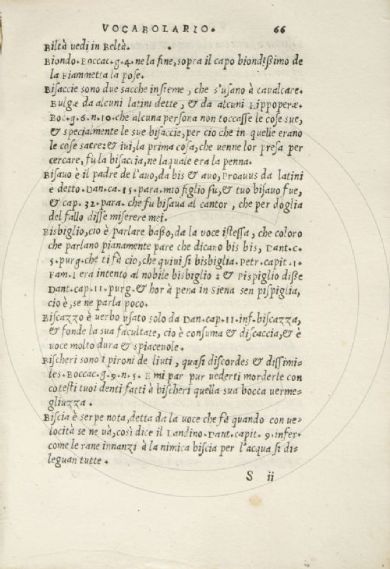 VOCABOLARIO. 66
Biltà uedi in Beltà.
Biondo. Boccac. g. 4. ne la fine, sopra il capo biondißimo de
la Fiammetta la pose.
Bisaccie sono due sacche insieme, che s'usano à caualcare.
Bulgæ da alcuni latini dette, & da alcuni Hippoperæ.
Boc. g. 6. n. 10. che alcuna persona non toccasse le cose sue,
& specialmente le sue bisaccie, per cio che in quelle erano
le cose sacre: & iui, la prima cosa, che uenne lor presa per
cercare, fu la bisaccia, ne la quale era la penna.
Bisauo è il padre de l'auo, da bis & auo, Proauus da latini
è detto. Dan. ca. 15. para. mio figlio fu, & tuo bisauo fue,
& cap. 32. para. che fu bisaua al cantor, che per doglia
del fallo disse miserere mei.
Bisbiglio, cio è parlare basso, da la uoce istessa, che coloro
che parlano pianamente pare che dicano bis bis, Dant. c.
5. purg. che ti fè cio, che quiui si bisbiglia. Petr. capit. 1.
Fam. I era intento al nobile bisbiglio: & Pispiglio disse
Dant. cap. 11. purg. & hor à pena in Siena sen pispiglia,
cio è, se ne parla poco.
Biscazzo è uerbo usato solo da Dan. cap. 11. inf. biscazza,
& fonde la sua facultate, cio è consuma & discaccia, & è
uoce molto dura & spiaceuole.
Bischeri sono i pironi de liuti, quasi discordes & dissimi-
les. Boccac. g. 9. n. 5. E mi par pur uederti morderle con
cotesti tuoi denti fatti à bischeri quella sua bocca uerme-
gliuzza.
Biscia è serpe nota, detta da la uoce che fà quando con ue-
locità se ne uà, così dice il Landino. Dant. capit. 9. infer.
come le rane innanzi à la nimica biscia per l'acqua si di-
leguan tutte.
S ii